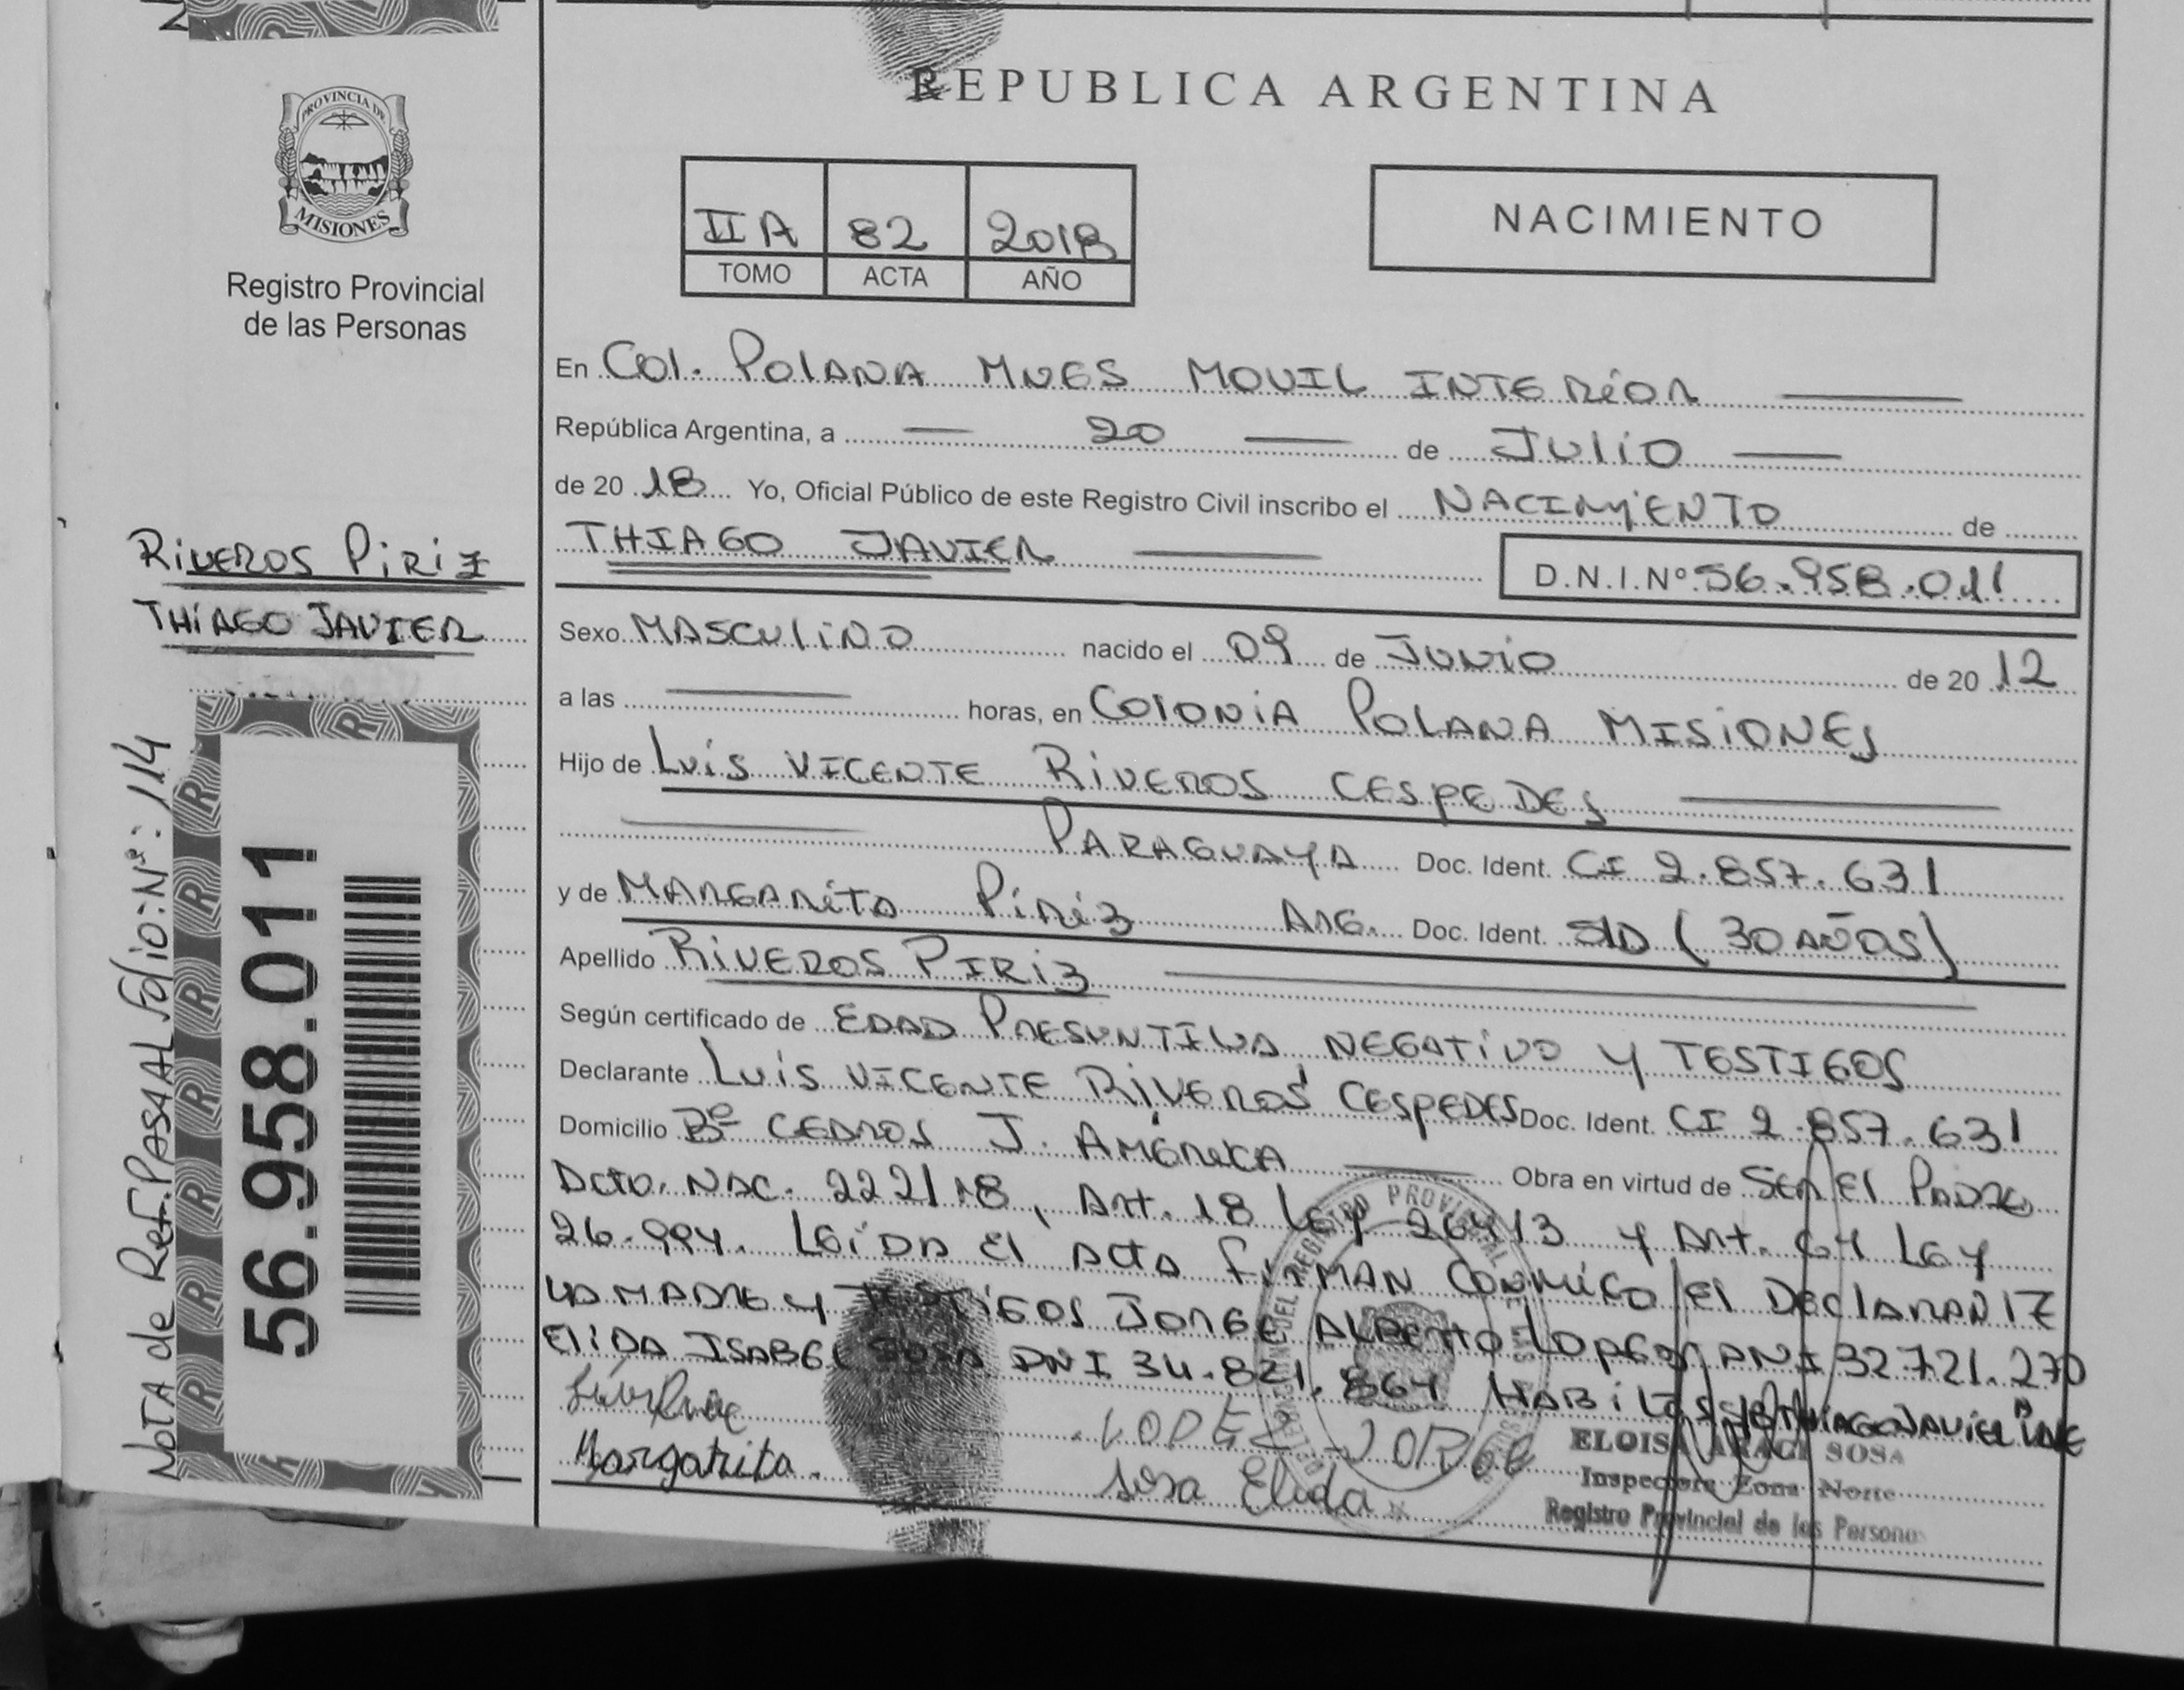 REPUBLICA ARGENTINA
PROVINCIA DE
MISIONES
Registro Provincial
de las Personas
II A 82 2018
TOMO ACTA AÑO
NACIMIENTO
En Col. Polana Mnes Movil Interior
República Argentina, a 20 de Julio
de 20 18 Yo, Oficial Público de este Registro Civil inscribo el NACIMIENTO de
THIAGO JAVIER
D.N.I.Nº 56.958.011
RIVEROS PIRIZ
THIAGO JAVIER
Sexo MASCULINO nacido el 09 de Junio de 20 12
a las horas, en COLONIA POLANA MISIONES
Hijo de Luis VICENTE RIVEROS CESPEDES
PARAGUAYA Doc. Ident. CI 2.857.631
y de MARGARITA PIRIZ ARG. Doc. Ident. S/D (30 AÑOS)
Apellido RIVEROS PIRIZ
Según certificado de EDAD PRESUNTIVA NEGATIVO Y TESTIGOS
Declarante Luis VICENTE RIVEROS CESPEDES Doc. Ident. CI 2.857.631
Domicilio Bº CEDROS J. AMÉRICA Obra en virtud de SER El PADRE
Dcto. NAC. 222/18, Art. 18 Ley 26413 y Art. 64 Ley
26.994. LEIDA El ACTA FIRMAN CONMIGO El DECLARANTE
LA MADRE y TESTIGOS JORGE ALBERTO LOPEZ DNI 32.721.270
ELIDA ISABEL SOSA DNI 34.821.864 HABILES THIAGO JAVIER VALE
LOPEZ JORGE
Margarita.
Sosa Elida
ELOISA ARACI SOSA
Inspectora Zona Norte
Registro Provincial de las Personas
NOTA de Ref. PASA AL Folio: Nº: 114
56.958.011